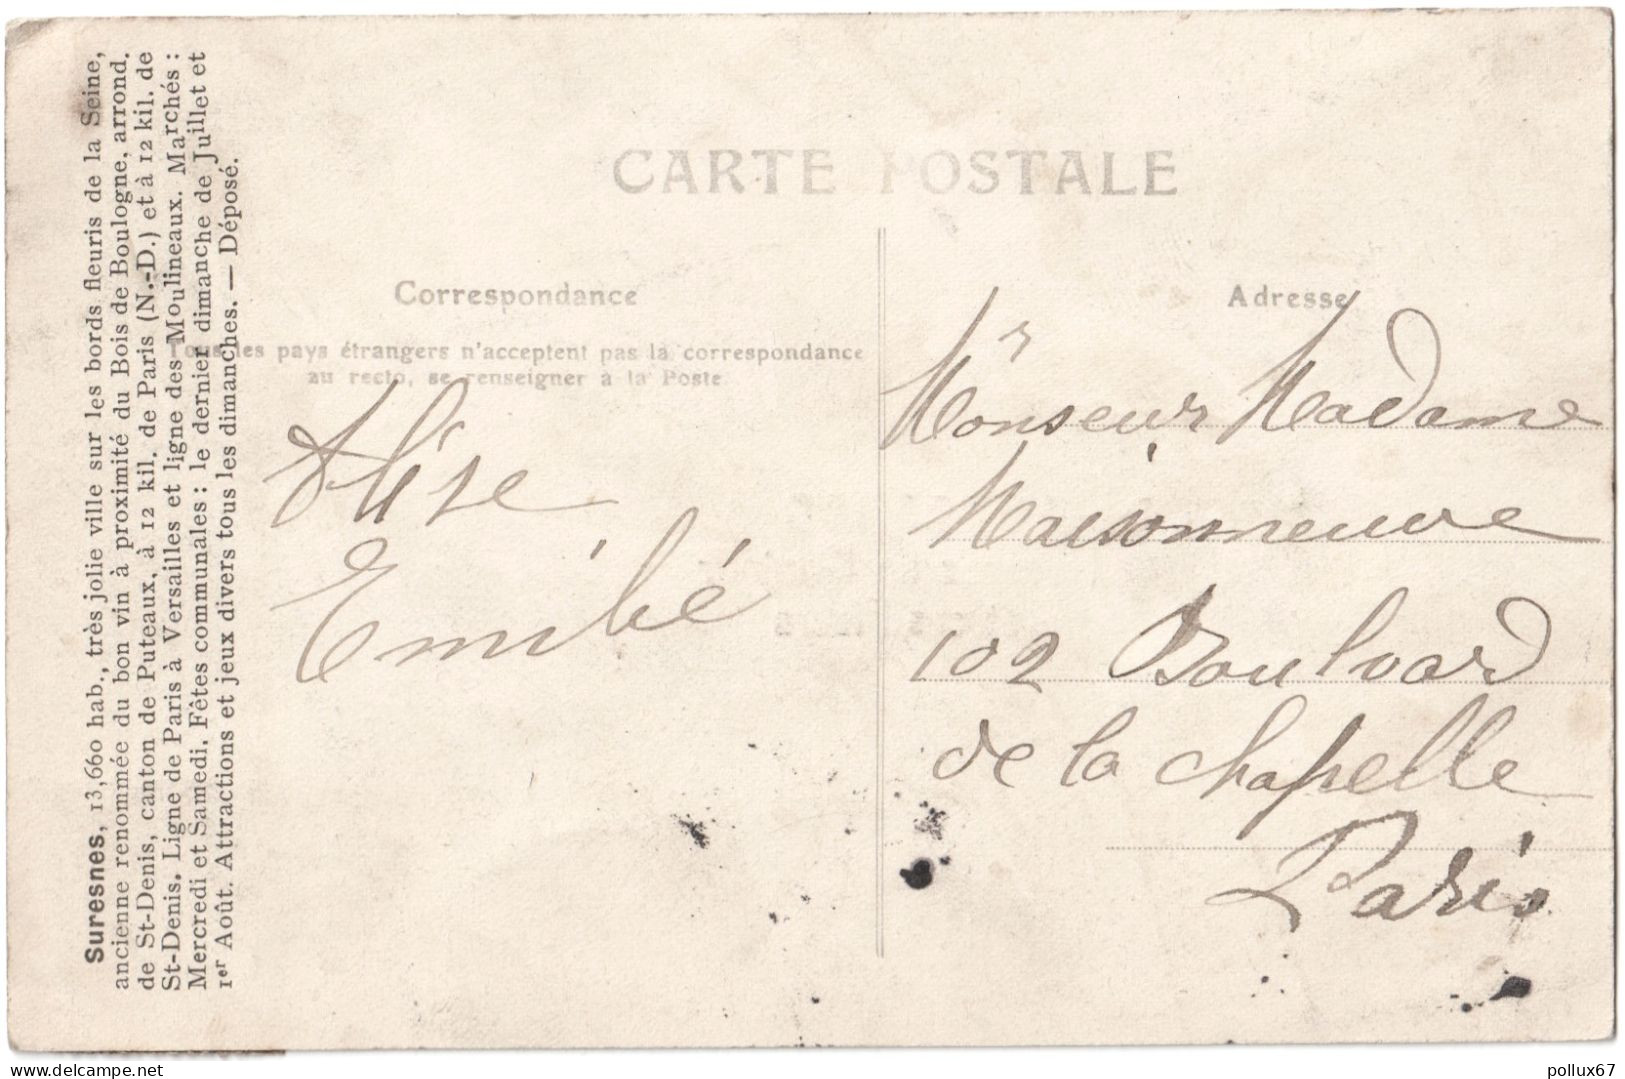 CARTE POSTALE
Correspondance
Tous les pays étrangers n'acceptent pas la correspondance
au recto, se renseigner à la Poste.
Adresse
Suresnes, 13,660 hab., très jolie ville sur les bords fleuris de la Seine,
ancienne renommée du bon vin à proximité du Bois de Boulogne, arrond.
de St-Denis, canton de Puteaux, à 12 kil. de Paris (N.-D.) et à 12 kil. de
St-Denis. Ligne de Paris à Versailles et ligne des Moulineaux. Marchés :
Mercredi et Samedi. Fêtes communales : le dernier dimanche de Juillet et
1er Août. Attractions et jeux divers tous les dimanches. — Déposé.
Alise
Emibé
Monseur Madame
Maisonneuve
102 Boulvard
de la chapelle
Paris
delcampe.net
pollux67